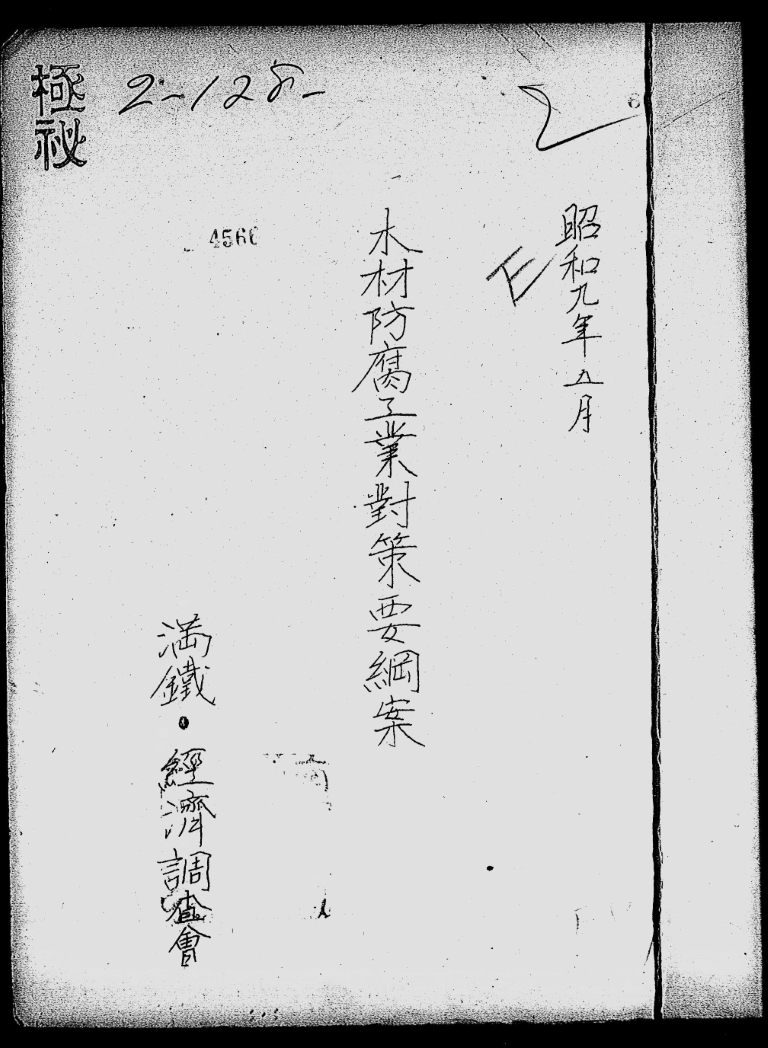 昭和九年五月
木材防腐工業對策要綱案
満鐵・經濟調査會
極祕
2-128-